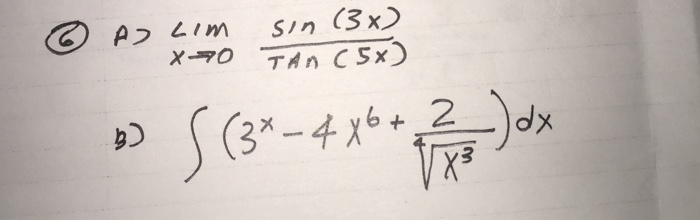 ⑥ A) LIM x→0 sin (3x) / TAn (5x)
B) ∫ (3^x − 4x^6 + 2 / ∜(x^3)) dx